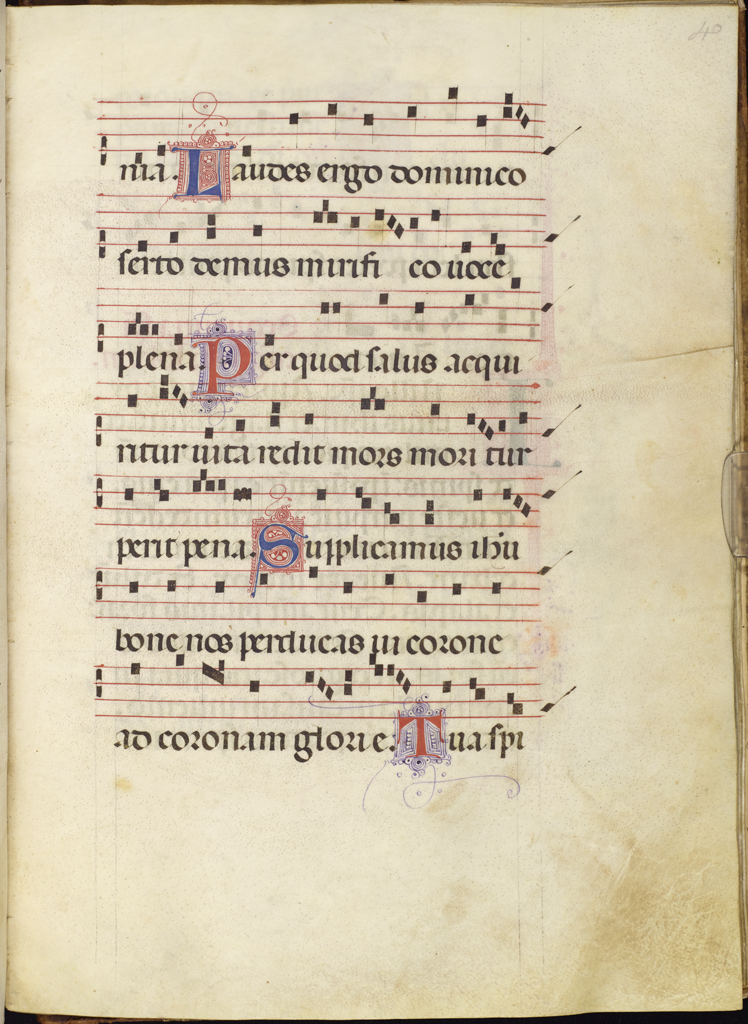 40
nia. Laudes ergo dominico
serto demus mirifico uoce
plena. Per quod salus acqui
ritur uita redit mors moritur
perit pena. Supplicamus ihu
bone nos perducas in corone
ad coronam glorie. Tua spi